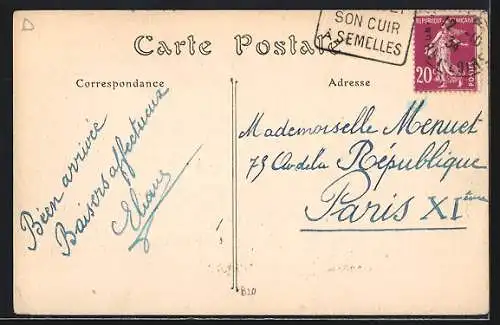 D
SON CUIR
À SEMELLES
RÉPUBLIQUE FRANÇAISE
20c
POSTES
Carte Postale
Correspondance
Adresse
Bien arrivée
Baisers affectueux
Eliane
Mademoiselle Menuet
79 Av de la République
Paris XI ème
B20